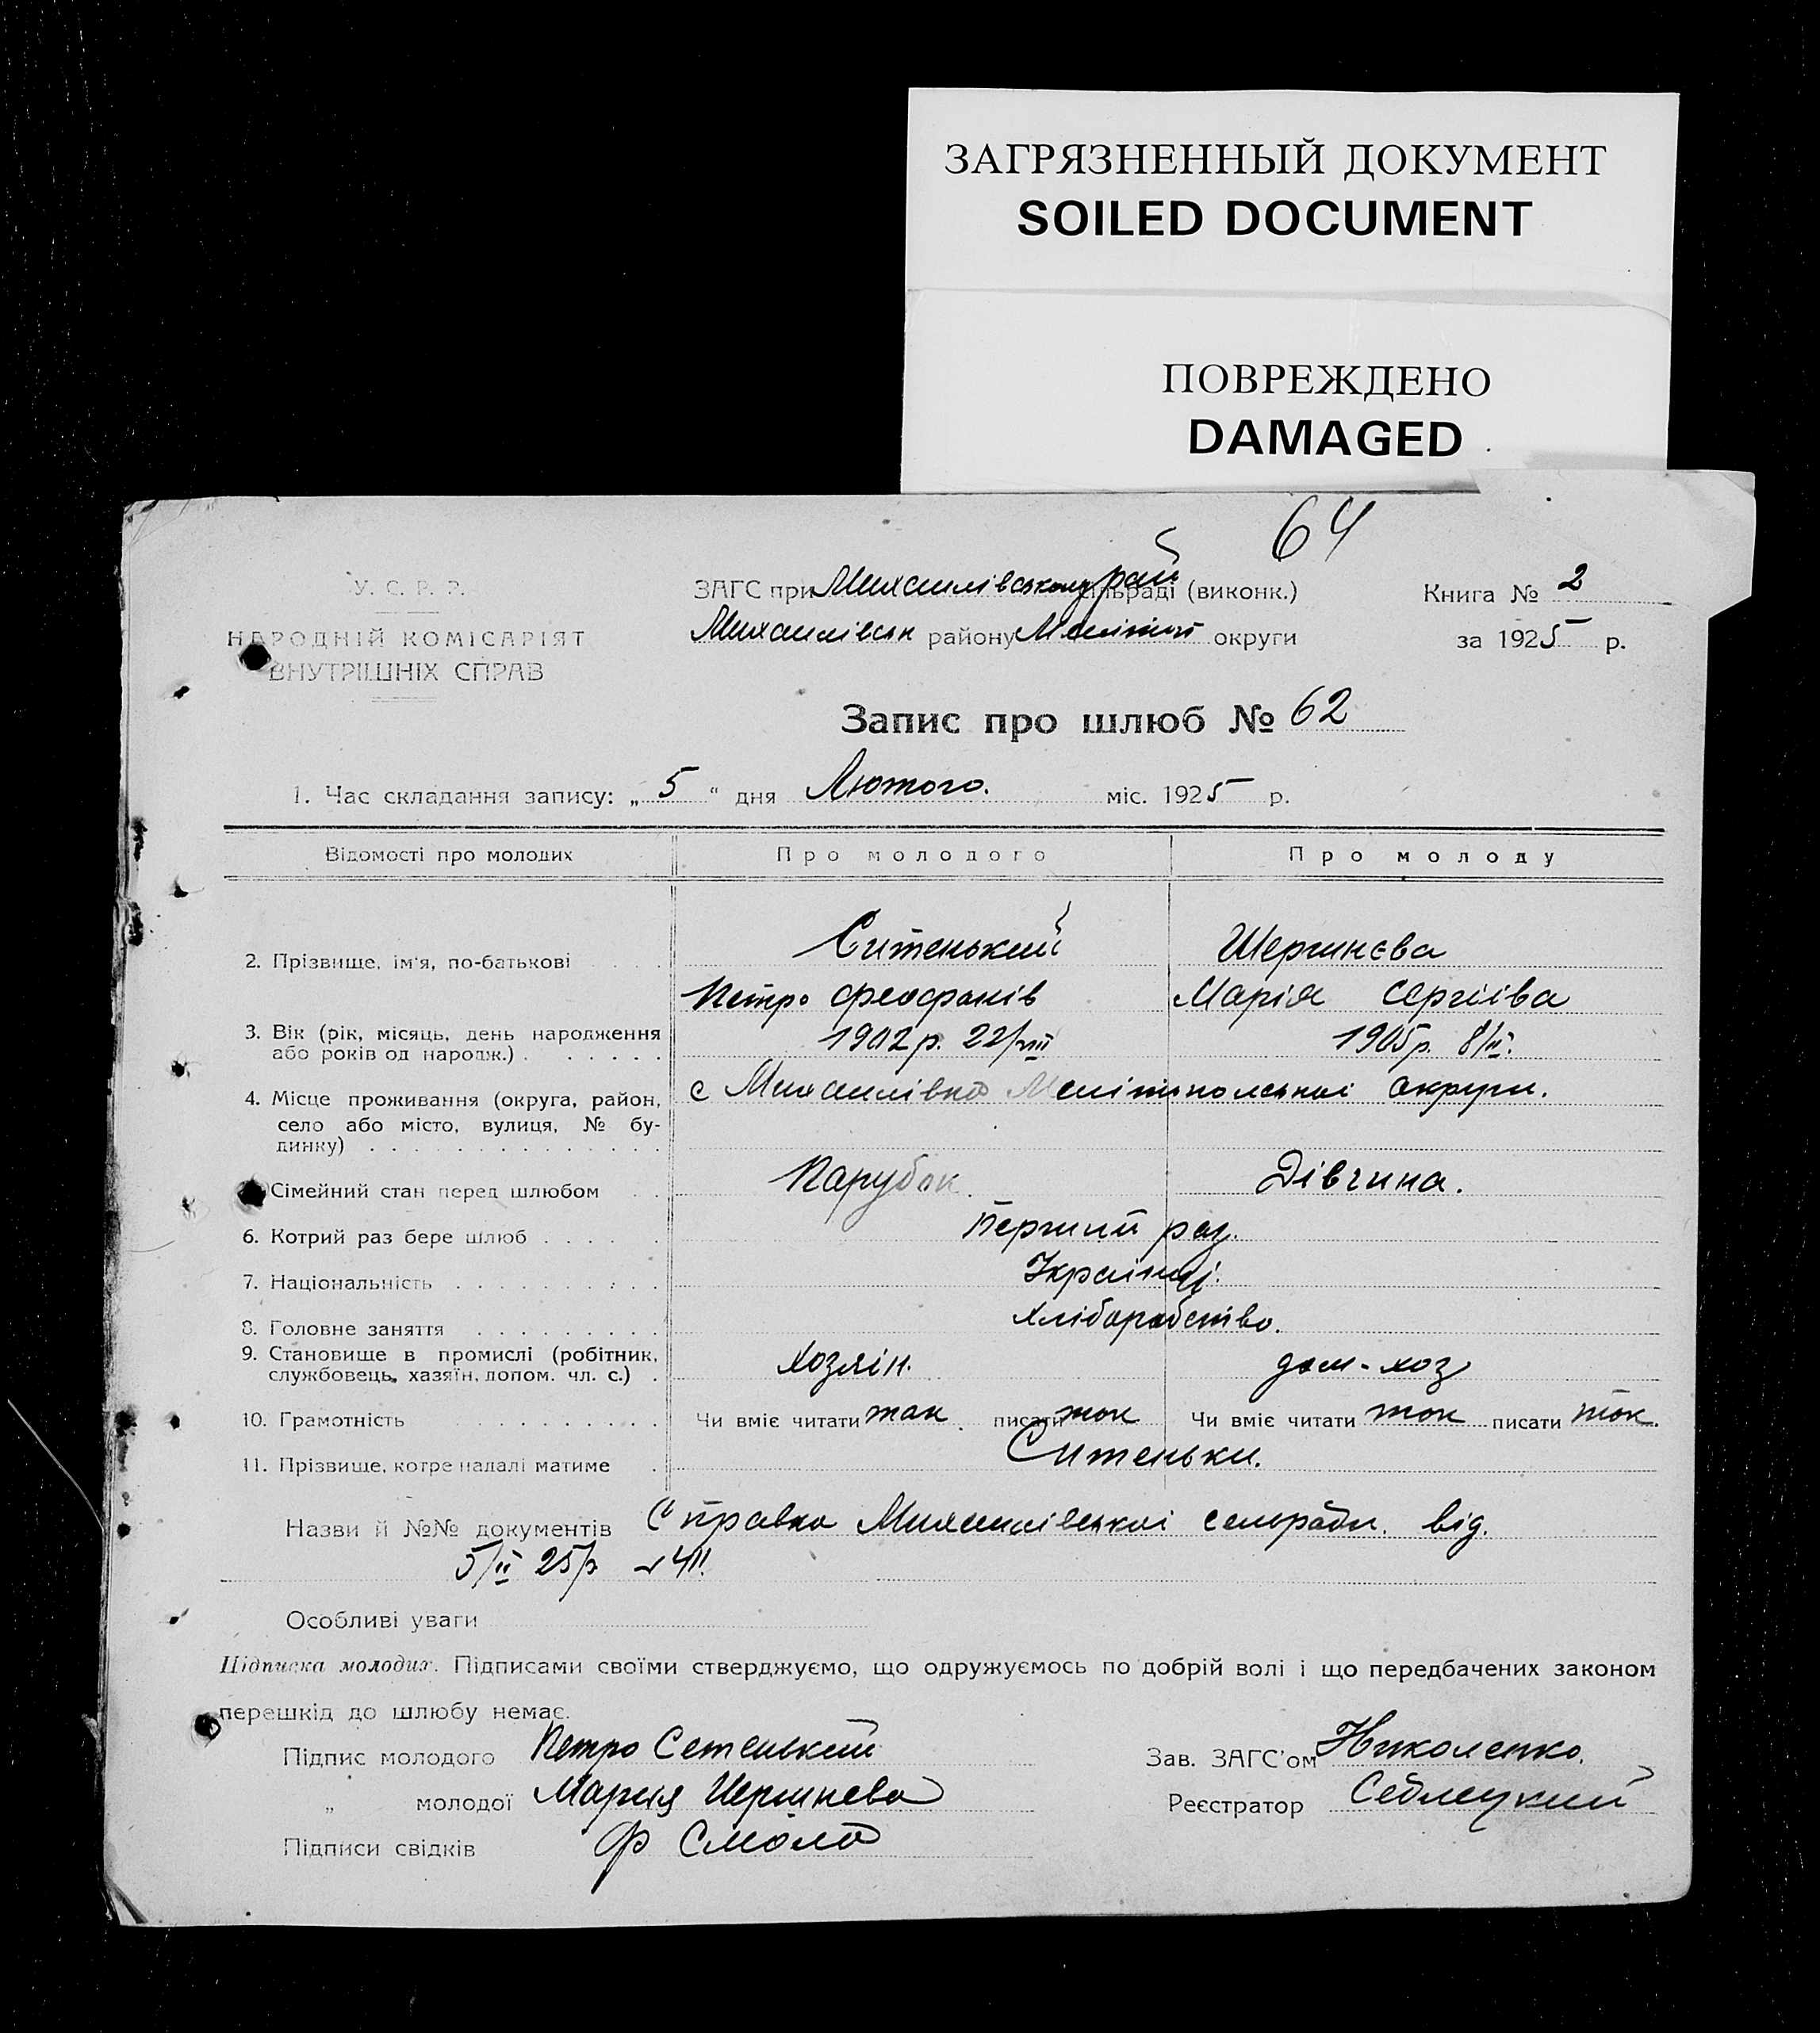 ЗАГРЯЗНЕННЫЙ ДОКУМЕНТ
SOILED DOCUMENT
ПОВРЕЖДЕНО
DAMAGED
64
У. С. Р. Р.
НАРОДНІЙ КОМІСАРІЯТ
ВНУТРІШНІХ СПРАВ
ЗАГС при Михайлівському рай сільраді (виконк.)
Михайлівськ району Меліт округи
Книга № 2
за 1925 р.
Запис про шлюб № 62
1. Час складання запису: „ 5 “ дня Лютого. міс. 1925 р.
Відомості про молодих Про молодого Про молоду
2. Прізвище, ім'я, по-батькові Ситенький Шершнєва
Петро Феофанів Марія Сергіїва
3. Вік (рік, місяць, день народження 1902 р. 22/VIII 1905 р. 8/II.
або років од народж.)
4. Місце проживання (округа, район, с Михайлівка Мелітопольської округи.
село або місто, вулиця, № бу-
динку)
Сімейний стан перед шлюбом Парубок. Дівчина.
6. Котрий раз бере шлюб Перший раз.
7. Національність Українці.
8. Головне заняття хліборобство.
9. Становище в промислі (робітник, хозяїн. дом-хоз
службовець, хазяїн, допом. чл. с.)
10. Грамотність Чи вміє читати так писати так Чи вміє читати так писати так.
11. Прізвище, котре надалі матиме Ситеньки.
Назви й №№ документів Справка Михайлівської сельради від.
5/II 25 р
Особливі уваги
Підписка молодих. Підписами своїми стверджуємо, що одружуємось по добрій волі і що передбачених законом
перешкід до шлюбу немає.
Підпис молодого Петро Сетенький Зав. ЗАГС'ом Николенко.
„ молодої Мария Шершнева Реєстратор
Підписи свідків Ф Смола